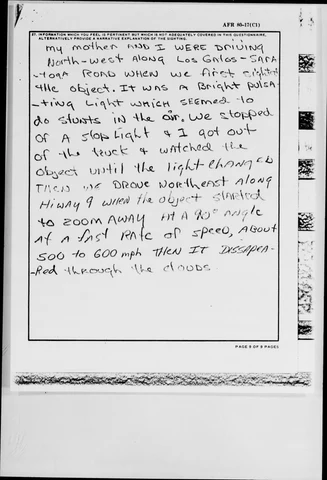 AFR 80-17(C1)
27. INFORMATION WHICH YOU FEEL IS PERTINENT BUT WHICH IS NOT ADEQUATELY COVERED IN THIS QUESTIONNAIRE.
ALTERNATIVELY PROVIDE A NARRATIVE EXPLANATION OF THE SIGHTING.
My mother AND I WERE DRIVING
North-west Along Los Gatos - SARA
-toga ROAD WHEN WE first sighted
the object. IT WAS A Bright pulsa-
-ting Light WHICH SEEMED to
do stunts in the air. We stopped
at A stop Light & I got out
of the truck & WATCHED the
Object until the light CHANGED
THEN WE DROVE NORTHEAST Along
HIWAY 9 WHEN the object started
to ZOOM AWAY At A 90° ANGLE
At A fast RATE of SPEED, About
500 to 600 mph THEN IT DISSAPEA-
-Red through the clouds.
PAGE 8 OF 9 PAGES